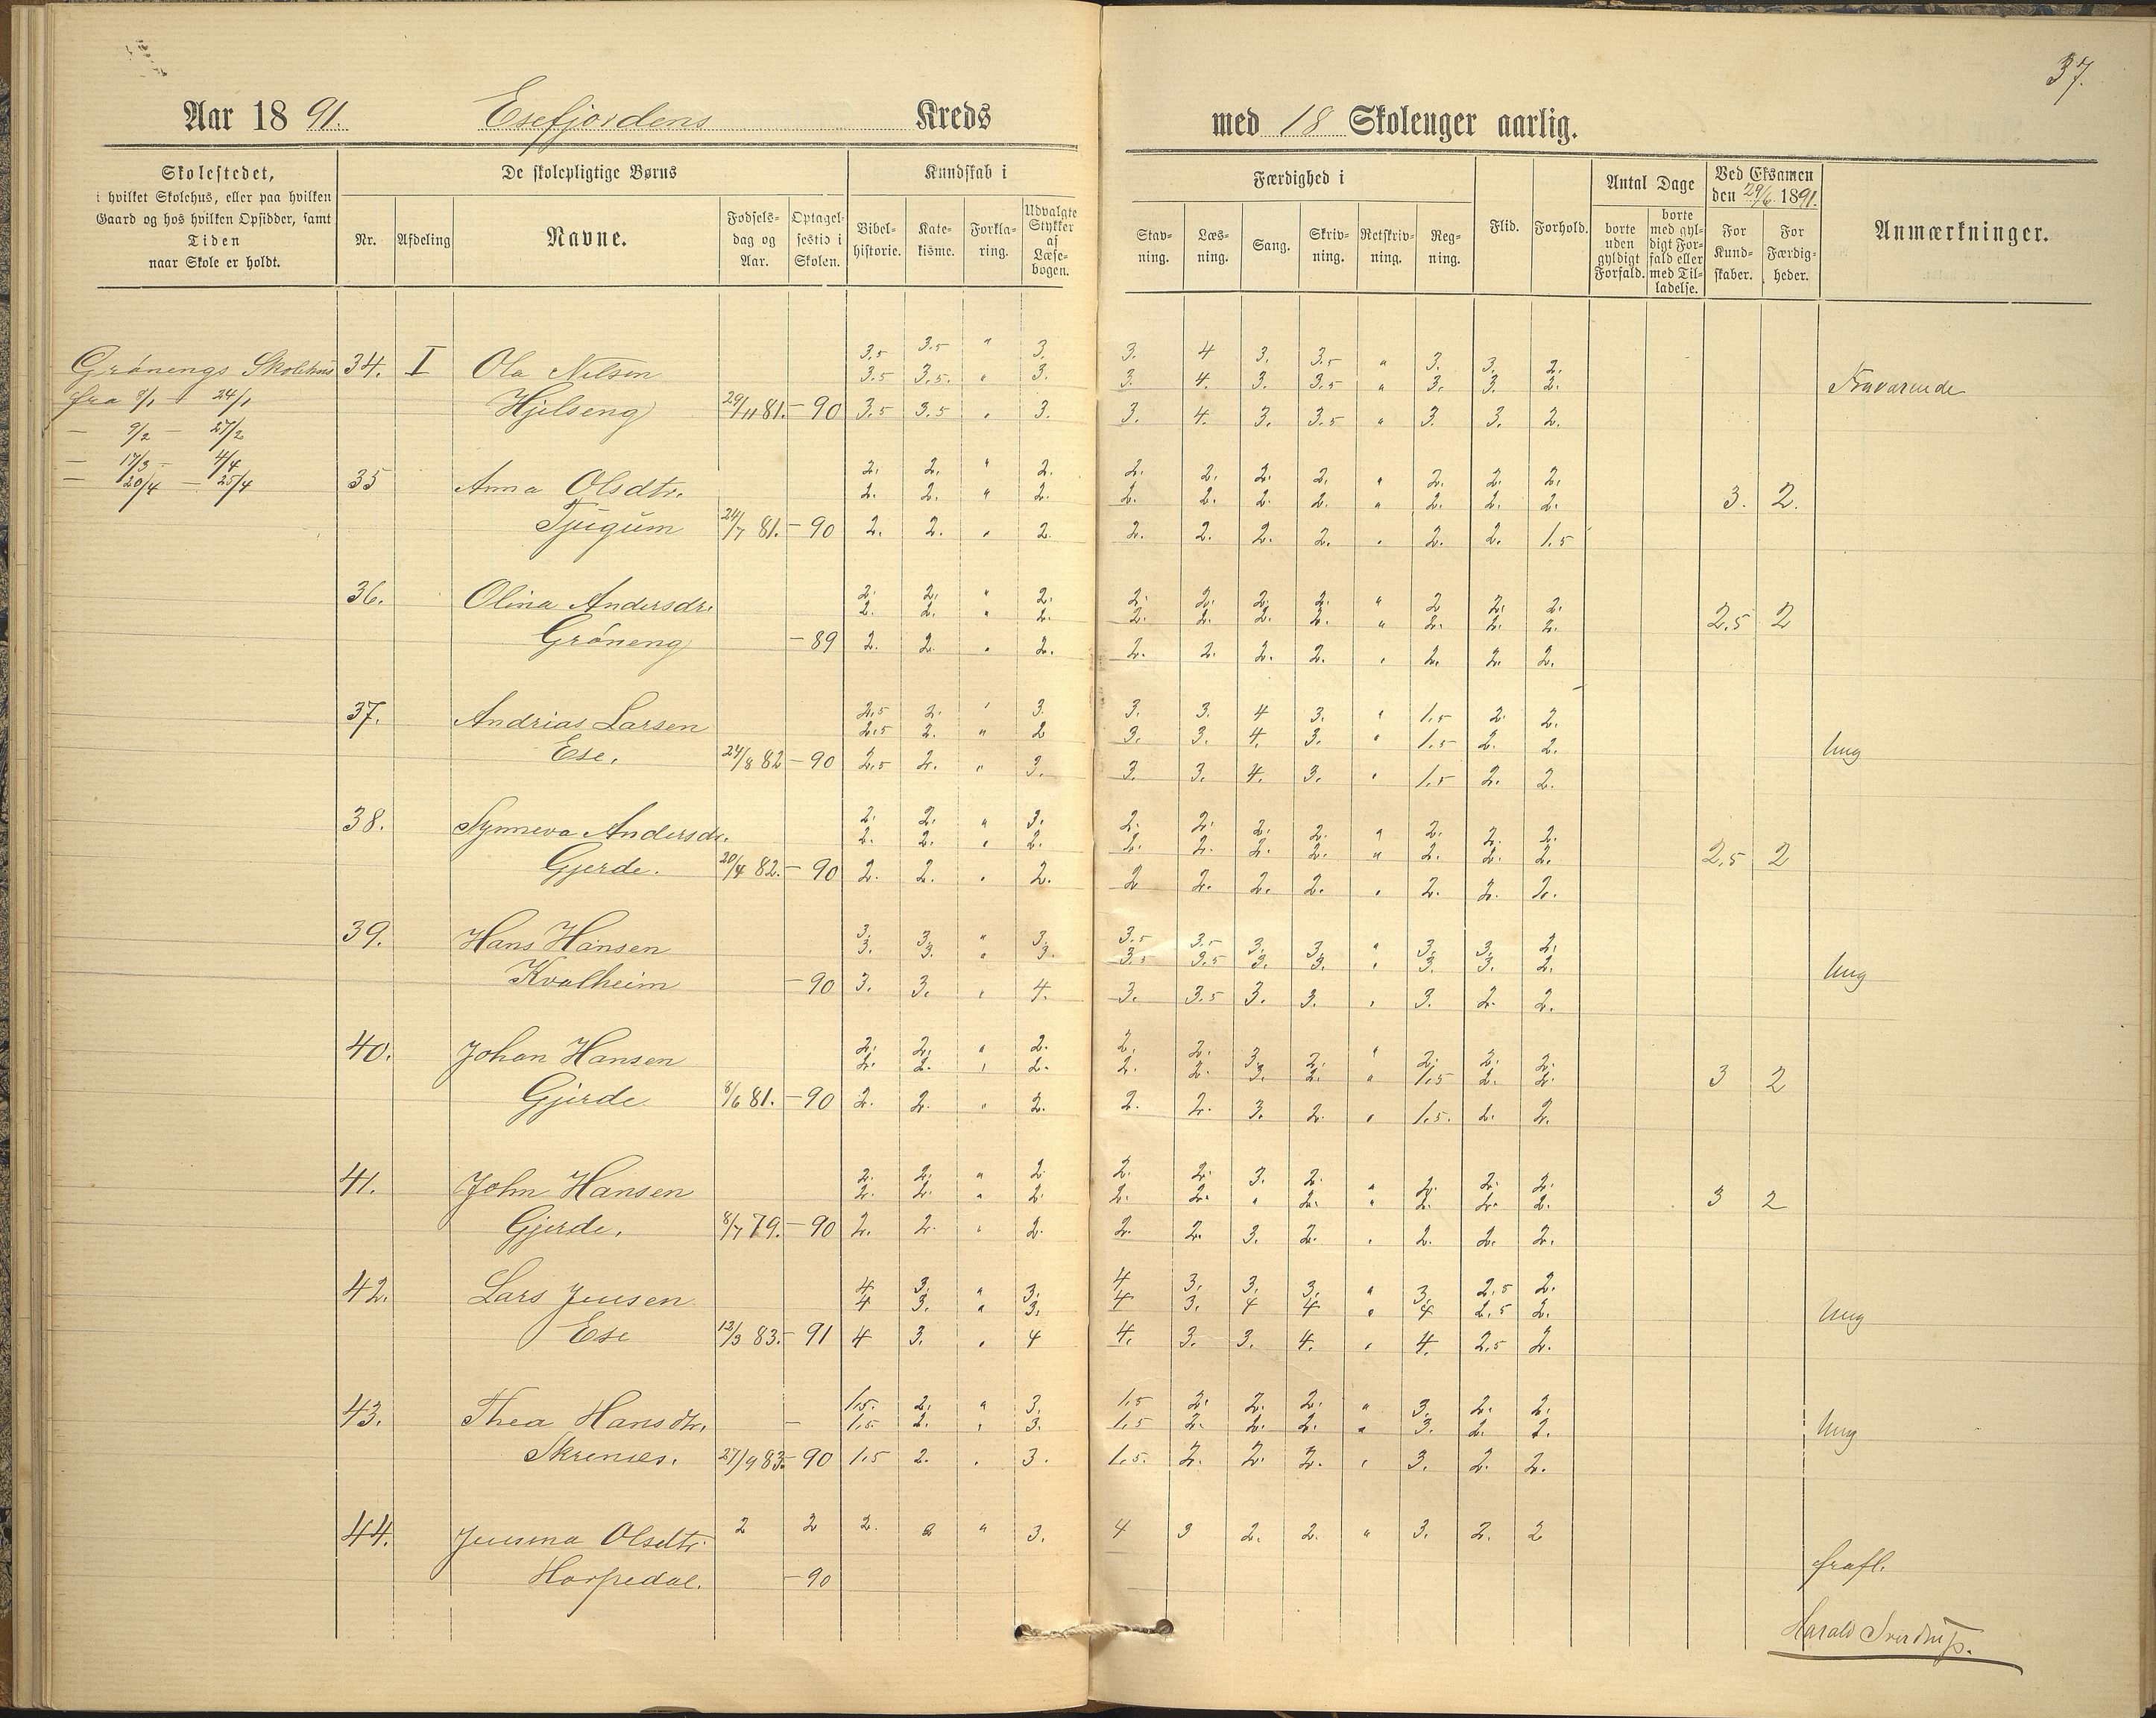 37.
Aar 18 91. Esefjordens Kreds med 18 Skoleuger aarlig.
Skolestedet,
i hvilket Skolehus, eller paa hvilken
Gaard og hos hvilken Opsidder, samt
Tiden
naar Skole er holdt.
De skolepligtige Børns
Nr. Afdeling Navne. Fødsels-dag og Aar. Optagel-sestid i Skolen.
Kundskab i
Bibel-historie. Kate-kisme. Forkla-ring. Udvalgte Stykker af Læse-bogen.
Færdighed i
Stav-ning. Læs-ning. Sang. Skriv-ning. Retskriv-ning. Reg-ning.
Flid. Forhold.
Antal Dage
borte uden gyldigt Forfald. borte med gyl-digt For-fald eller med Til-ladelse.
Ved Eksamen
den 29/6 1891.
For Kund-skaber. For Færdig-heder.
Anmærkninger.
Grønengs Skolehus
fra 8/1 - 24/1
— 9/2 — 27/2
— 17/3 — 4/4
— 20/4 — 25/4
34. I Ola Nilsen 3,5 3.5 " 3. 3. 4 3. 3.5 " 3. 3. 2.
3.5 3.5. " 3. 3. 4. 3. 3.5 " 3. 3. 2. Fraværende
Hjelseng 29/11 81. - 90 3.5 3.5 " 3. 3. 4. 3. 3.5 " 3. 3. 2.
35 Anna Olsdtr. 2. 2. " 2. 2. 2. 2. 2. " 2. 2. 2.
2. 2. " 2. 2. 2. 2. 2. " 2. 2. 2. 3. 2.
Tjugum 24/7 81. - 90 2. 2. " 2. 2. 2. 2. 2. " 2. 2. 1.5
36. Olina Andersdr. 2. 2. " 2. 2. 2. 2. 2. " 2 2. 2.
2. 2. " 2. 2. 2. 2. 2. " 2. 2. 2. 2,5 2
Grøneng - 89 2. 2. " 2. 2. 2. 2. 2. " 2. 2. 2.
37. Andrias Larsen 2,5 2. " 3. 3. 3. 4 3. " 1.5 2. 2.
2.5 2. " 2 3. 3. 4. 3. " 1.5 2. 2. Ung
Ese. 24/8 82 - 90 2,5 2. " 3. 3. 3. 4. 3. " 1.5 2. 2.
38. Synneva Andersdr. 2. 2. " 3. 2. 2. 2. 2. " 2. 2. 2.
2. 2. " 2. 2. 2. 2. 2. " 2. 2. 2. 2,5 2
Gjerde. 20/4 82. - 90 2. 2. " 2. 2 2. 2. 2. " 2. 2. 2.
39. Hans Hansen 3. 3. " 3. 3.5 3.5 3. 3. " 3. 3. 2.
3. 3. " 3. 3.5 3.5 3. 3. " 3. 3. 2. Ung
Kvalheim - 90 3. 3. " 4. 3. 3.5 3. 3. " 3. 2. 2.
40. Johan Hansen 2. 2. " 2. 2. 2. 3. 2. " 2. 2. 2.
2. 2. " 2. 2. 2. 3. 2. " 1.5 2. 2. 3 2
Gjerde 8/6 81. - 90 2. 2. " 2. 2. 2. 3. 2. " 1.5. 2. 2.
41. John Hansen 2. 2. " 2 2. 2. 3. 2. " 2. 2. 2.
2. 2. " 2. 2. 2. " 2. " 2. 2. 2. 3 2
Gjerde. 8/7 79. - 90 2. 2. " 2. 2. 2. 3. 2. " 2. 2. 2.
42. Lars Jensen 4. 3. " 3. 4 3. 3. 3. " 3. 2.5 2.
4 3. " 3. 4 3. 4 4 " 4 2.5 2. Ung
Ese 12/3 83. - 91 4 3. " 4 4. 3. 3. 4. " 4. 2,5 2.
43. Thea Hansdtr. 1.5. 2. " 3. 1.5 2. 2. 2. " 3. 2. 2.
- 1.5. 2. " 3. 1.5 2. 2. 2. " 3. 2. 2. Ung
27/9 83. - 90 1.5 2. " 3. 1.5. 2. 2. 2. " 3. 2. 2.
44. Olsdtr. 2 2 2. 2 " 3. 4 3 2. 2. " 3. 2. 2
Horpedal. - 90 frafl.
Harald Sverdrup.